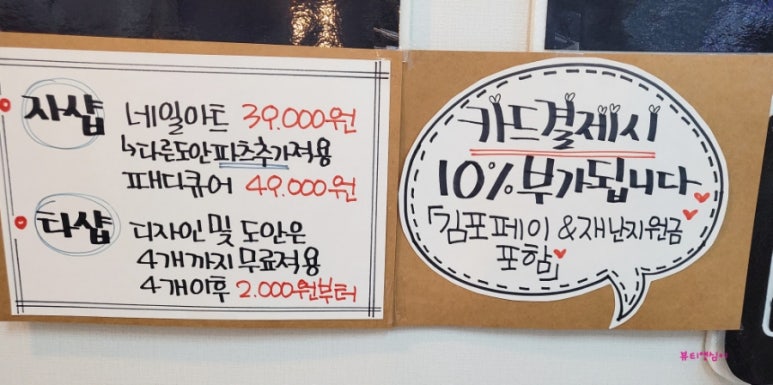 자샵
네일아트 39.000원
↳다른도안파츠추가적용
패디큐어 49.000원
타샵
디자인 및 도안은
4개까지 무료적용
4개이후 2.000원부터
카드결제시
10% 부가됩니다
「김포페이 & 재난지원금
포함」